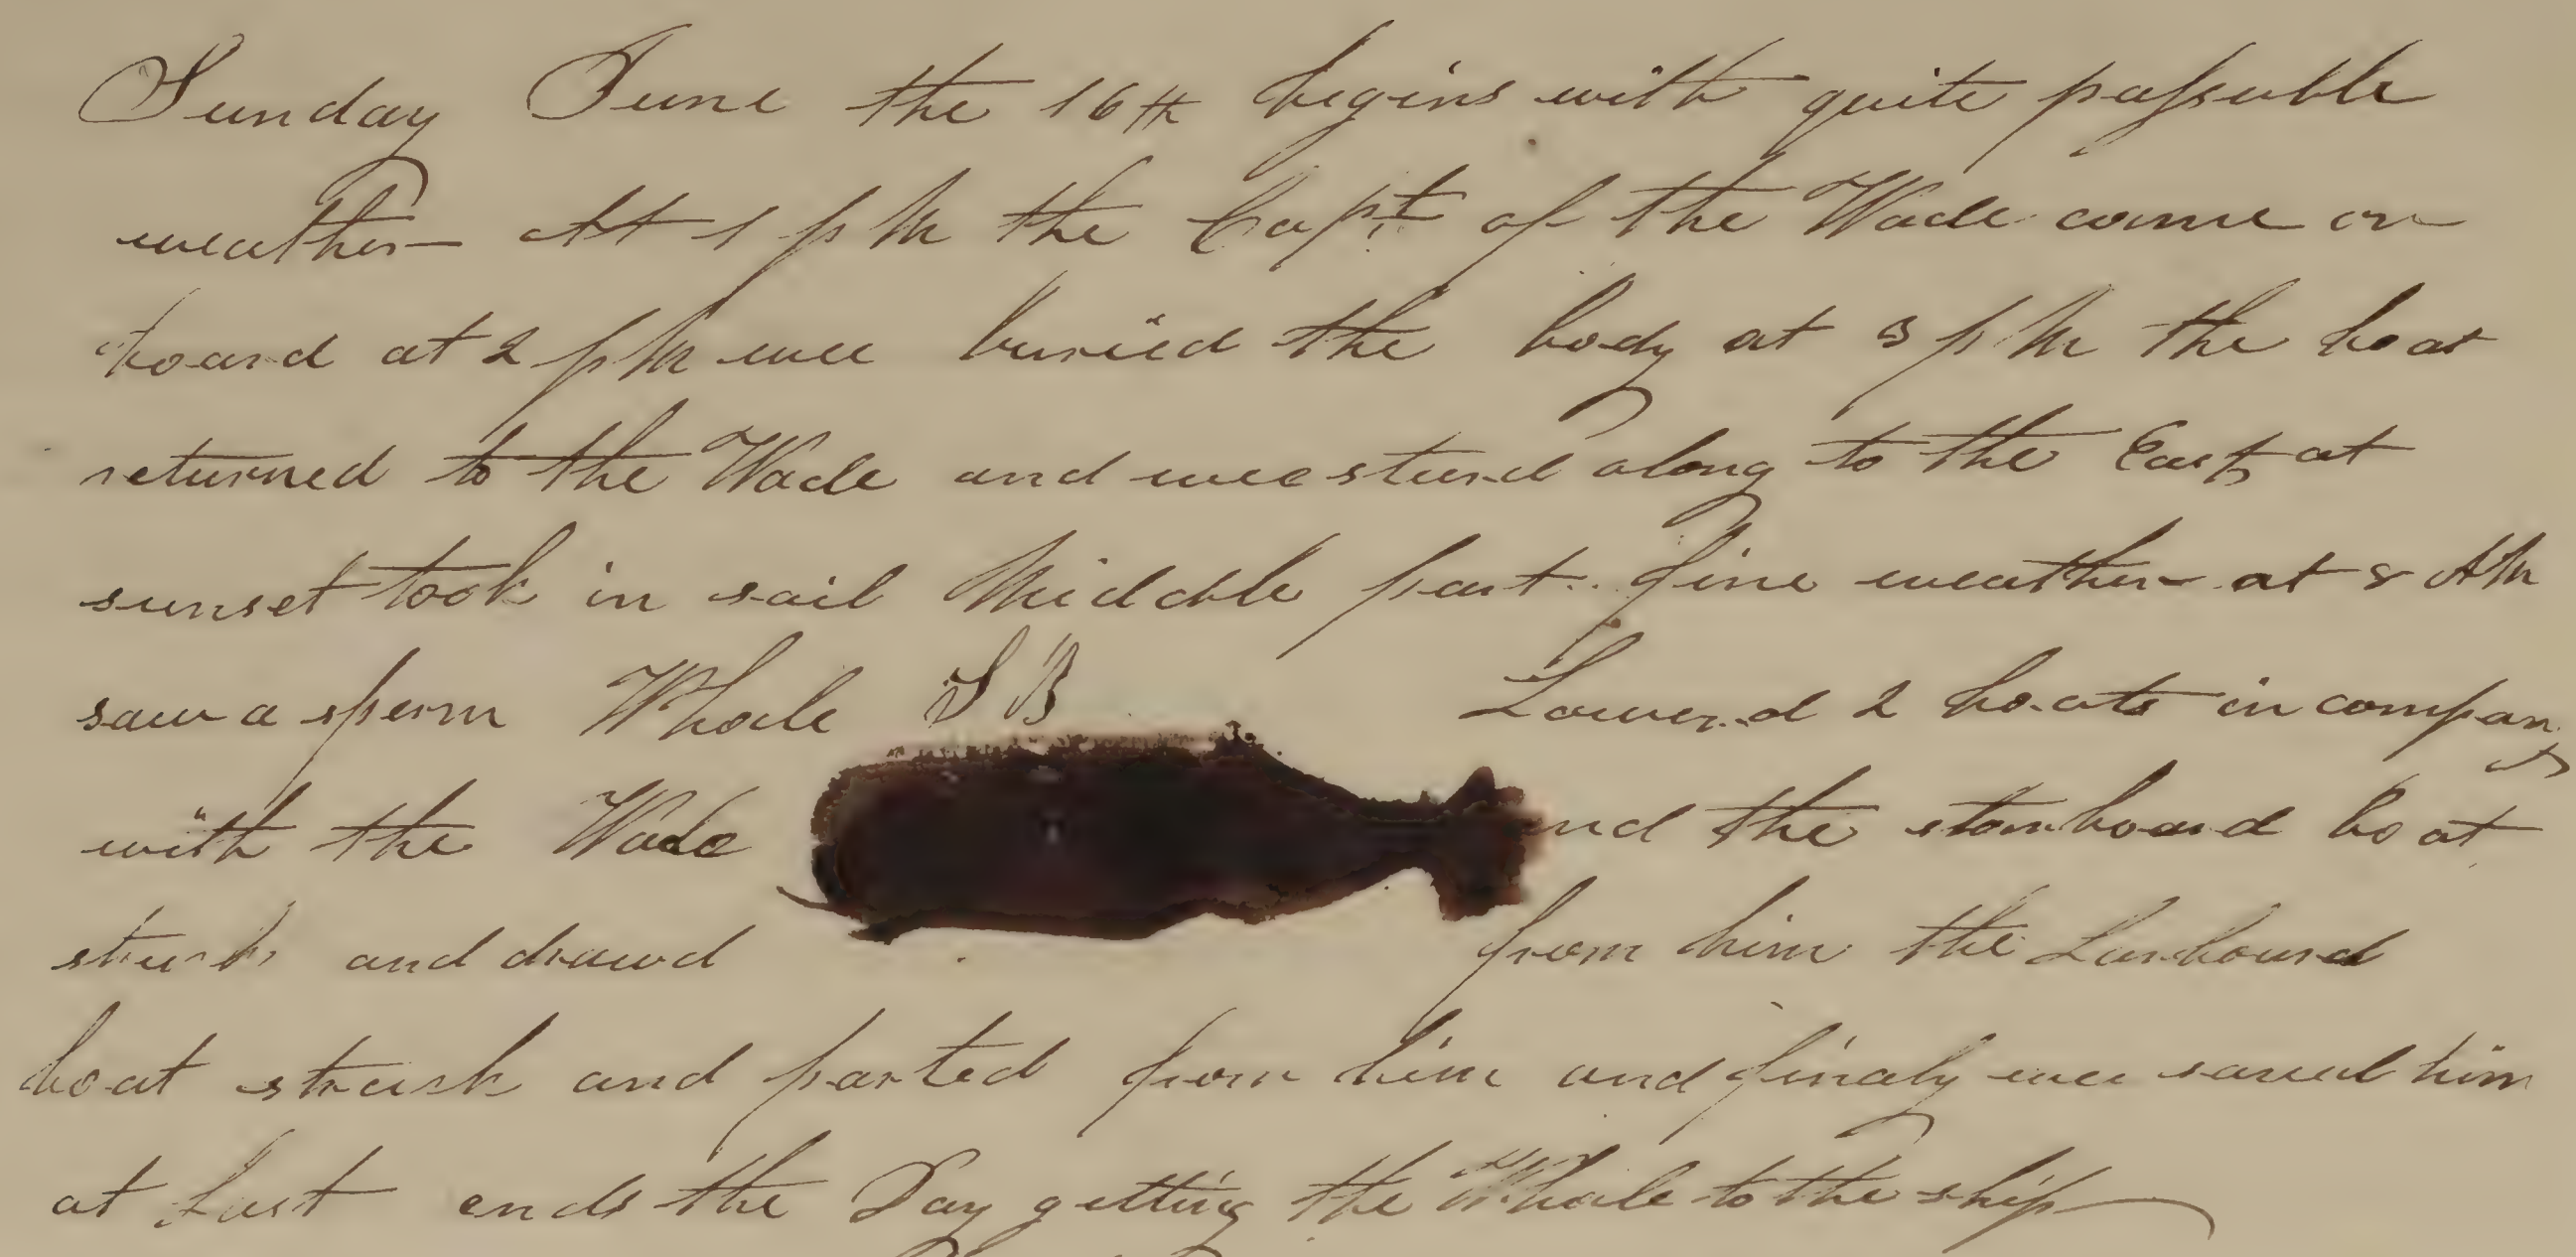 Sunday June the 16th begins with quite passable
weather At 1 p M the Capt of the Wade came on
board at 2 p M wee buried the body at 3 p M the boat
returned to the Wade and wee steerd along to the East at
sunset took in sail Middle part fine weather at 8 AM
saw a sperm Whale S B Lowered 2 boats in company
with the Wade and the starboard boat
struck and drawd from him the Larboard
boat struck and parted from him and finaly wee saved him
at Last ends the Day getting the Whale to the ship